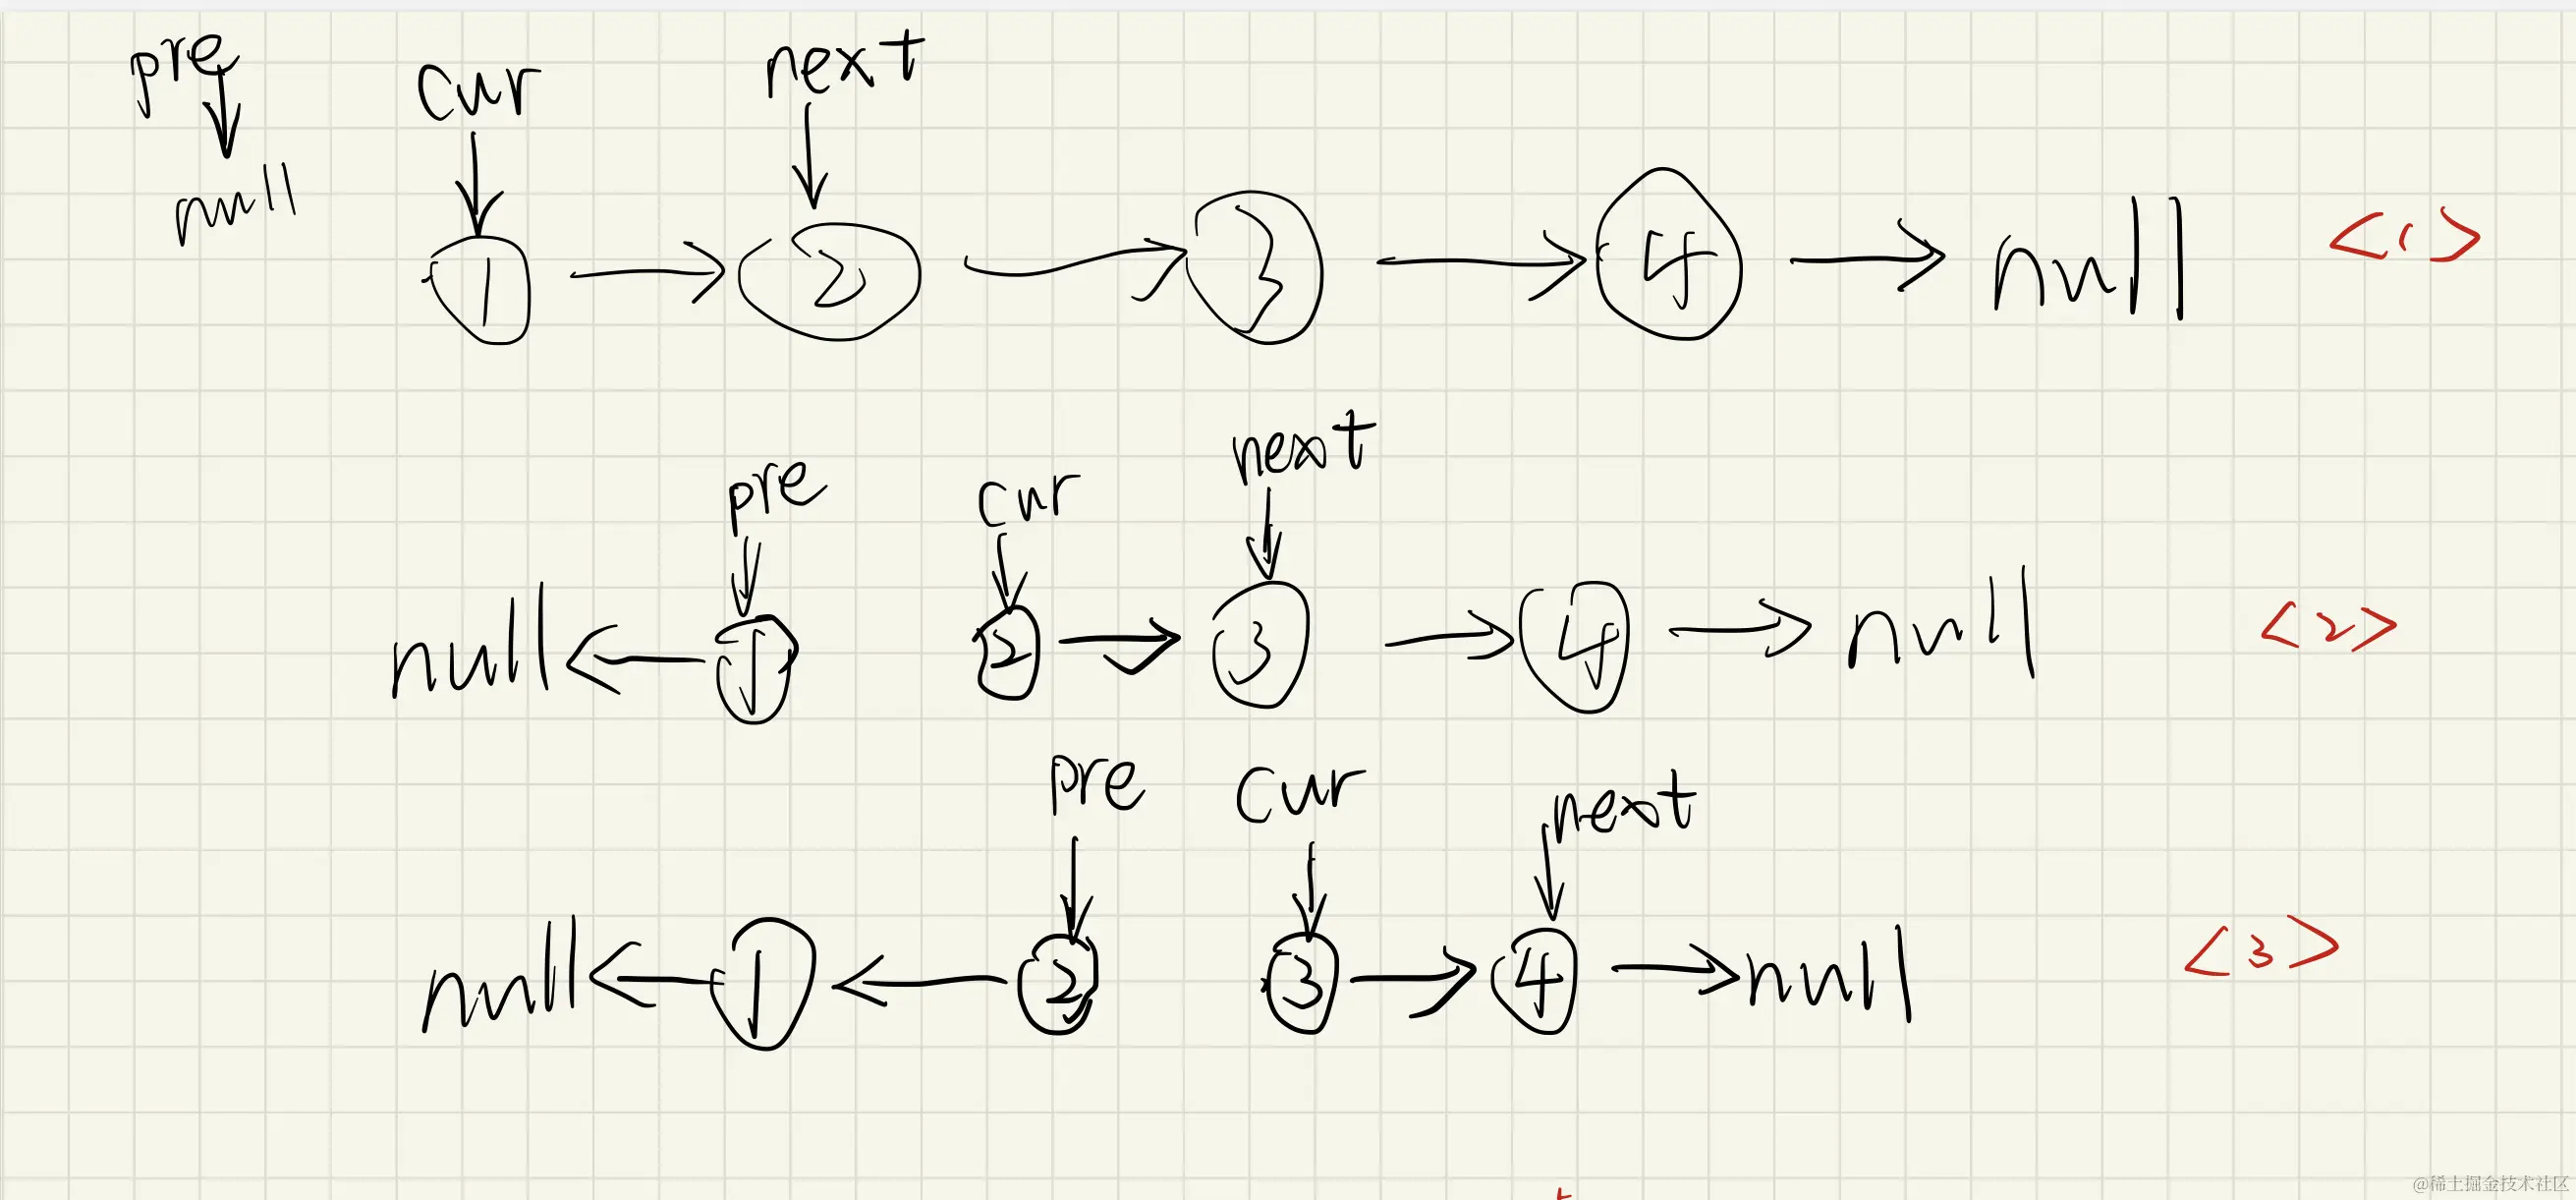 pre cur next
null
1 2 3 4 null <1>
pre cur next
null 1 2 3 4 null <2>
pre cur next
null 1 2 3 4 null <3>
@稀土掘金技术社区